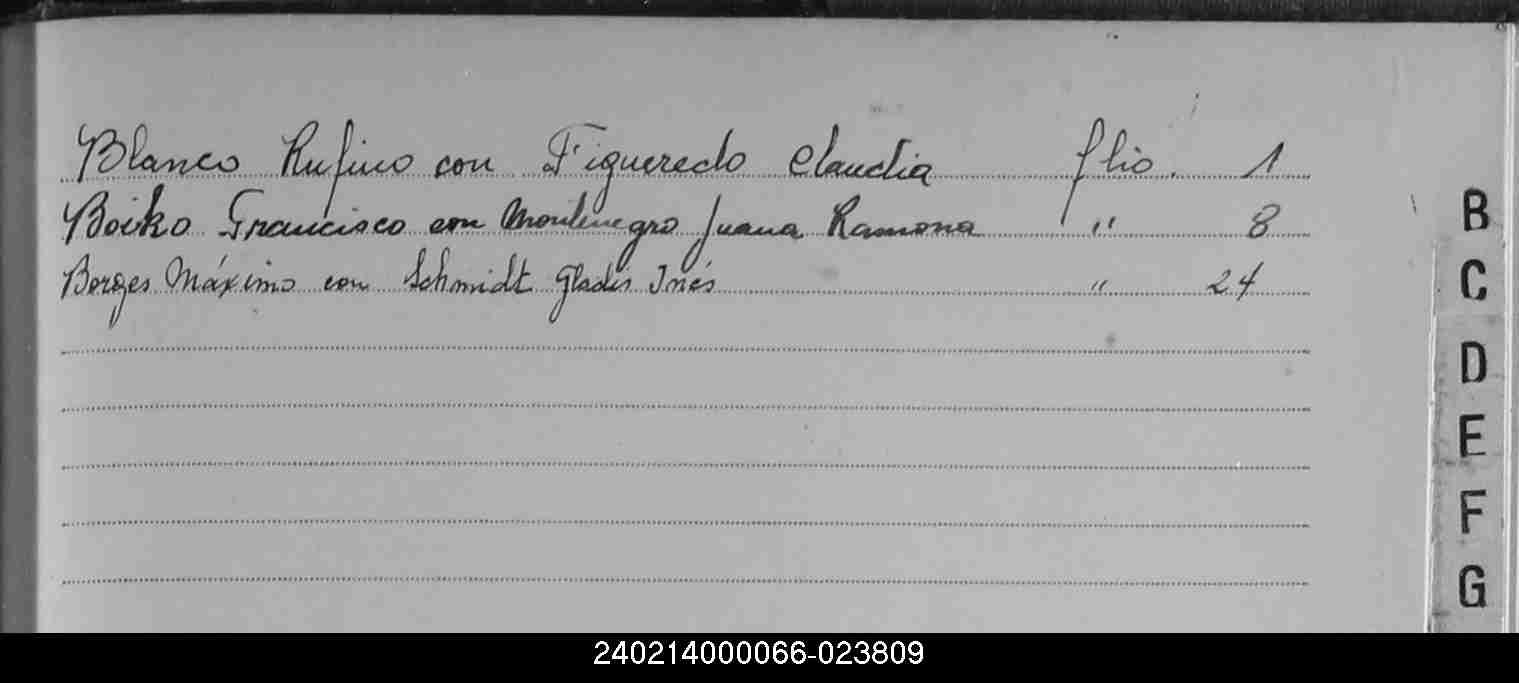 Blanco Rufino con Figueredo Claudia flio. 1
Boiko Francisco con Montenegro Juana Ramona " 8
Borges Máximo con Schmidt Gladis Inés " 24
B
C
D
E
F
G
240214000066-023809